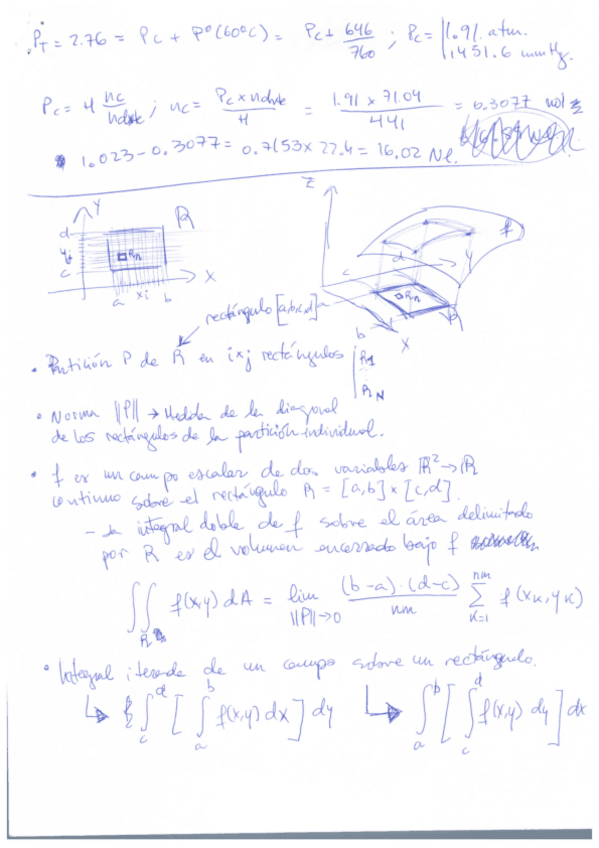 P_T = 2.76 = P_C + P°(60°C) = P_C + 646/760 ; P_C = | 1.91 atm. | 1451.6 mmHg.
P_C = H n_C/ ; n_C = / H = 1.91 x 71.04 / 441 = 0.3077 mol
1.023 - 0.3077 = 0.7153 x 22.4 = 16.02 Nl.
Y
d
R
y_j
R_n
c
X
a x_i b
Z
f
d
c
y
a
R_n
R
b
X
rectángulo [a,b,c,d]
• Partición P de R en i x j rectángulos | R_1 ⋮ R_N
• Norma ||P|| → Medida de la diagonal
de los rectángulos de la partición individual.
• f es un campo escalar de dos variables ℝ² → ℝ
continuo sobre el rectángulo R = [a,b] x [c,d].
- La integral doble de f sobre el área delimitado
por R es el volumen encerrado bajo f
∬_R f(x,y) dA = lim_{||P||→0} (b-a)·(d-c)/nm ∑_{K=1}^{nm} f(x_K, y_K)
• Integral iterada de un campo sobre un rectángulo.
↳ ∫_c^d [ ∫_a^b f(x,y) dx ] dy ↳ ∫_a^b [ ∫_c^d f(x,y) dy ] dx